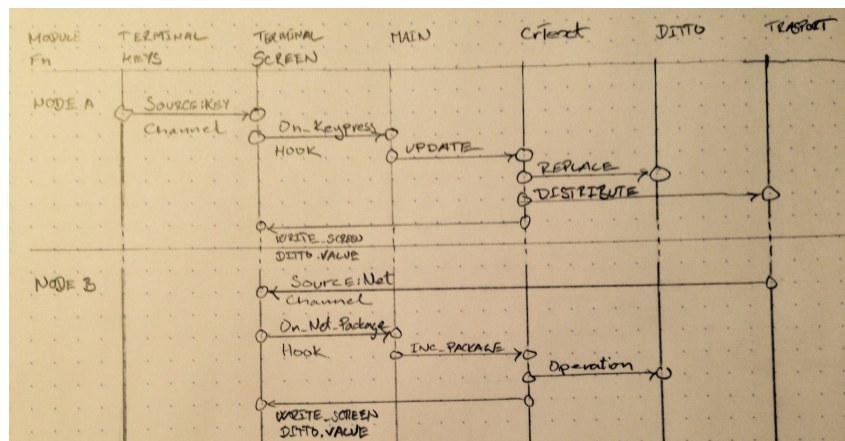 MODULE TERMINAL TERMINAL MAIN CrText DITTO TRASPORT
Fn KEYS SCREEN
NODE A SOURCE:KEY
Channel On_Keypress
HOOK UPDATE
REPLACE
DISTRIBUTE
WRITE_SCREEN
DITTO.VALUE
NODE B Source:Net
Channel
On_Net_Package
Hook INC_PACKAGE
Operation
WRITE_SCREEN
DITTO.VALUE